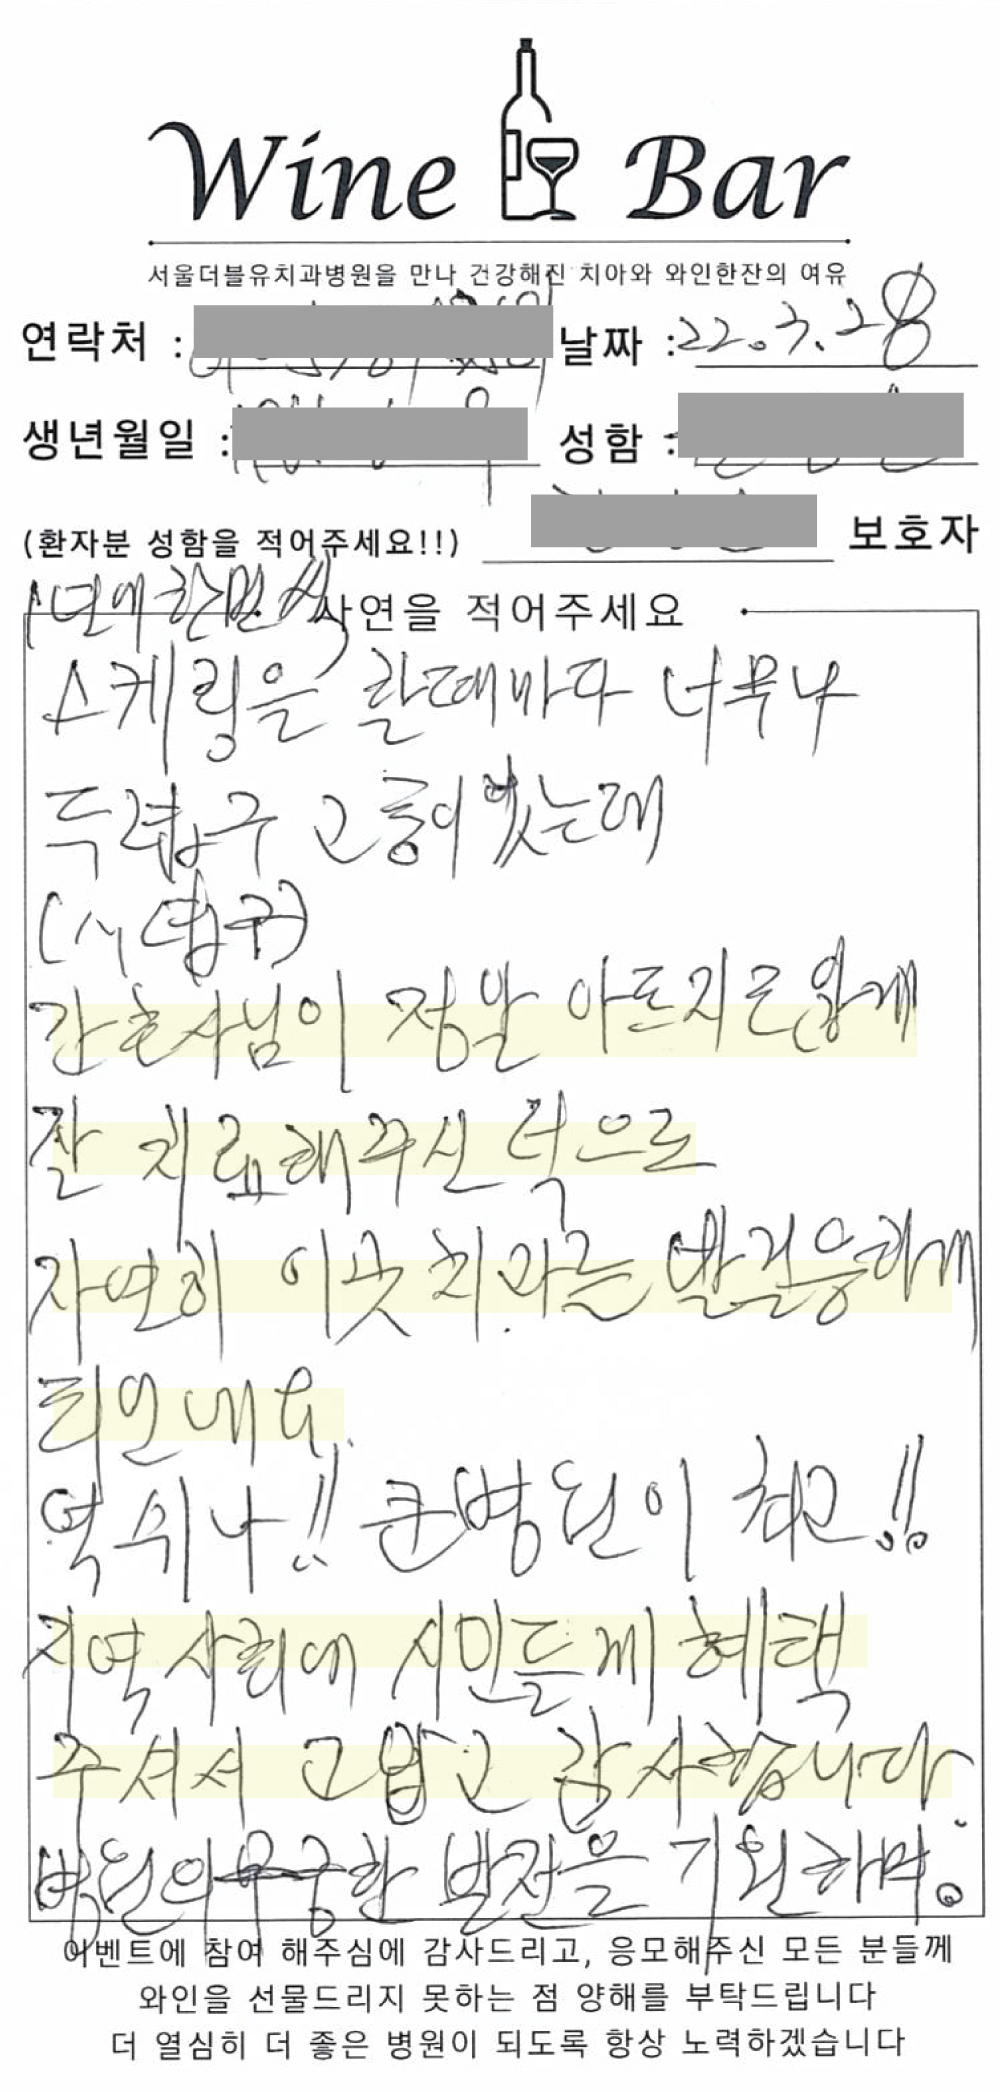 Wine Bar
서울더블유치과병원을 만나 건강해진 치아와 와인한잔의 여유
연락처 : 날짜 : 22.3.28
생년월일 : 성함 :
(환자분 성함을 적어주세요!!) 보호자
사연을 적어주세요
1년에 한번씩
스케링을 할때마다 너무나
두렵구 고통이 있는데
간호사님이 정말 아프지 않게
잘 치료해주신 덕으로
자연히 이곳 치과를 발걸음하게
되었네요.
역쉬나!! 큰병원이 최고!!
지역사회에 시민들께 혜택
주셔서 고맙고 감사합니다.
병원의 무궁한 발전을 기원하며.
이벤트에 참여 해주심에 감사드리고, 응모해주신 모든 분들께
와인을 선물드리지 못하는 점 양해를 부탁드립니다
더 열심히 더 좋은 병원이 되도록 항상 노력하겠습니다